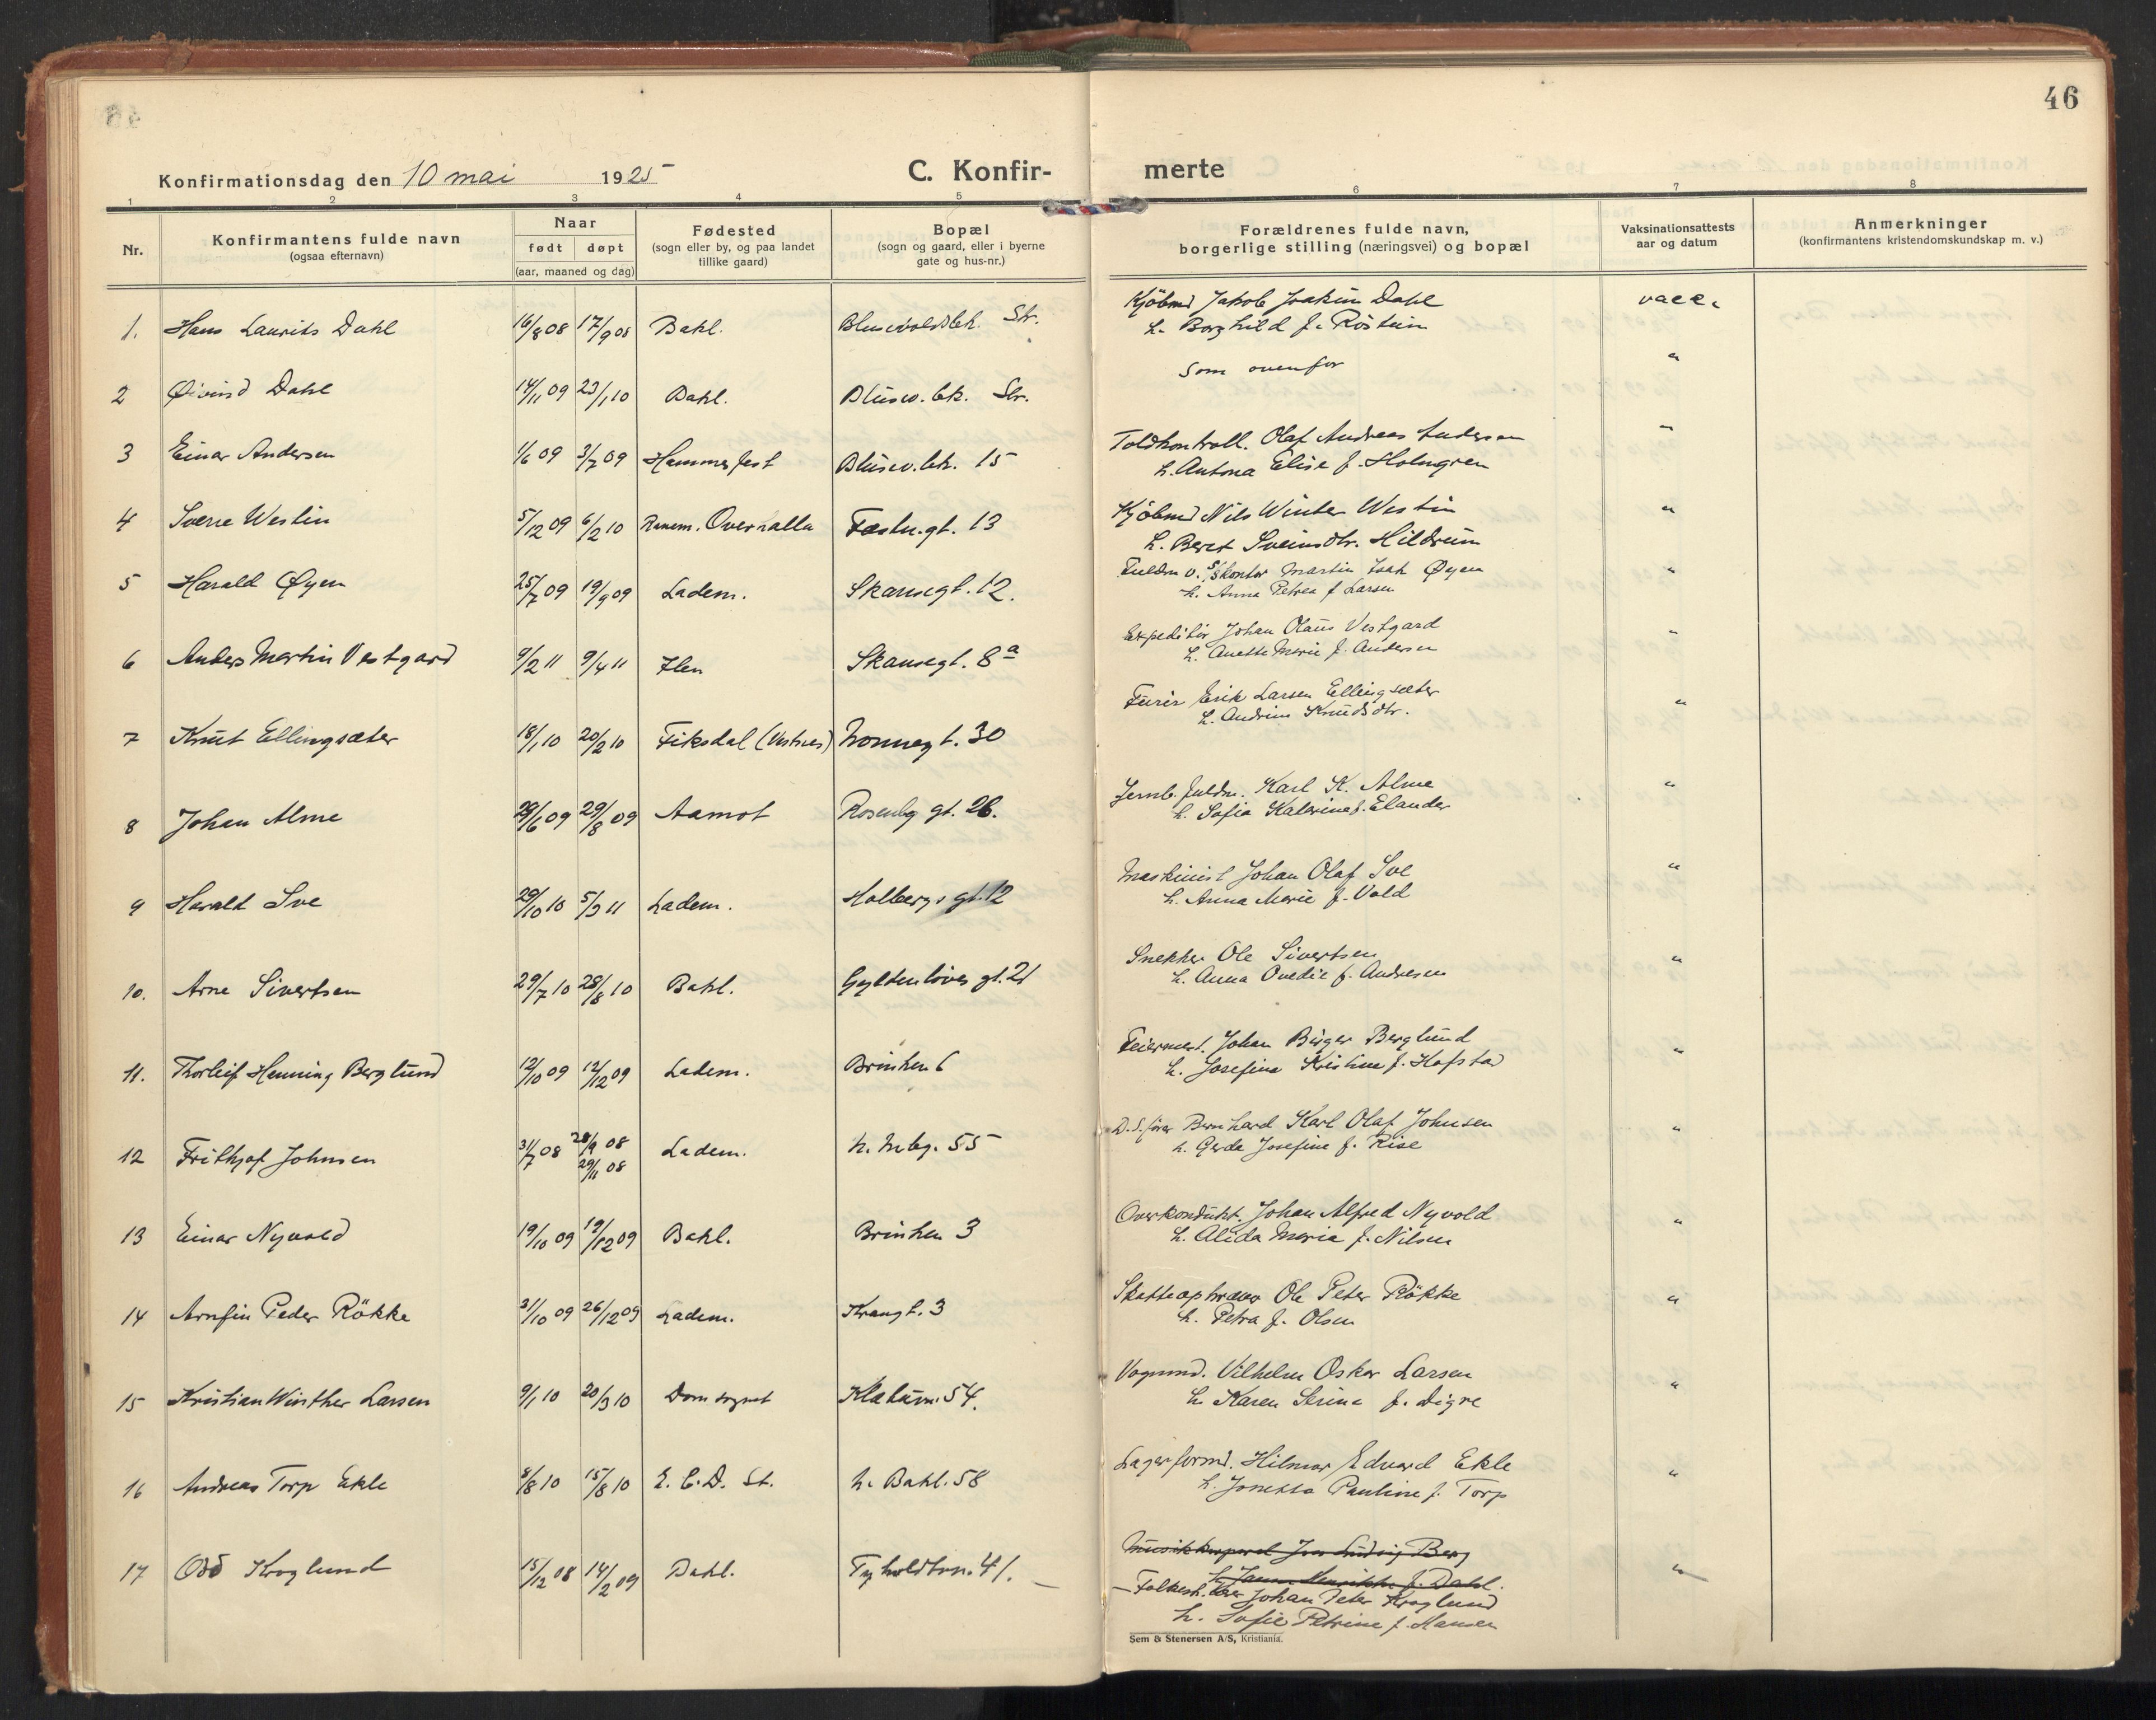 46
Konfirmationsdag den 10 mai 1925
C. Konfir- merte
1 2 3 4 5 6 7 8
Nr.
Konfirmantens fulde navn
(ogsaa efternavn)
Naar
født døpt
(aar, maaned og dag)
Fødested
(sogn eller by, og paa landet
tillike gaard)
Bopæl
(sogn og gaard, eller i byerne
gate og hus-nr.)
Forældrenes fulde navn,
borgerlige stilling (næringsvei) og bopæl
Vaksinationsattests
aar og datum
Anmerkninger
(konfirmantens kristendomskundskap m. v.)
1. Hans Laurits Dahl 16/8 08 17/9 08 Bakl. Str. Kjöbmd Jakob Joakim Dahl vacc.
h. Borghild f. Röstum
2 Øivind Dahl 14/11 09 23/1 10 Bakl. Blusev. bk. Str. Som ovenfor "
3 Einar Andersen 1/6 09 3/7 09 Hammerfest Blusev. bk. 15 Toldkontroll. Olaf Andreas Andersen "
h. Antona Elise f. Holmgren
4 Sverre Westin 5/12 09 6/2 10 Ranem. Overhalla Fæstn.gt. 13 Kjöbmd Nils Winter Westin "
h. Beret Sveinsdtr. Hildrum
5 Harald Øyen 25/7 09 19/9 09 Ladem. Skansegt. 12. Fuldm v. Martin Isak Øyen "
h. Anna Petrea f Larsen
6 Anders Martin Vestgard 9/2 11 9/4 11 Ilen Skansegt. 8a Expeditör Johan Olaus Vestgard "
h. Anette Marie f. Andersen
7 Knut Ellingsæter 18/1 10 20/2 10 Fiksdal (Vestnes) Nonnegt. 30 Furer Erik Larsen Ellingsæter "
h. Andrine Knudsdtr.
8 Johan Alme 29/6 09 29/8 09 Aamot Rosenbg gt. 26. Jernb. fuldm. Karl K. Alme "
h. Sofie Katrine f. Elander
9 Harald Sve 29/10 10 5/3 11 Ladem. Holbergs gt. 12 Maskinist Johan Olaf Sve "
h. Anna Marie f. Vold
10. Arne Sivertsen 29/7 10 28/8 10 Bakl. Gyldenløves gt. 21 Snekker Ole Sivertsen "
h. Anna Ovedie f. Andresen
11. Thorleif Henning Berglund 12/10 09 12/12 09 Ladem. Brinken 6 Feiermest. Johan Birger Berglund "
h. Josefine Kristine f. Hofstad
12 Frithjof Johnsen 31/7 08 28/9 08 Ladem. N. Mbg. 55 D.S. fører Bernhard Karl Olaf Johnsen "
29/11 08 h. Gerda Josefine f. Rise
13 Einar Nyvold 19/10 09 19/12 09 Bakl. Brinken 3 Overkondukt. Johan Alfred Nyvold "
h. Alida Maria f. Nilsen
14 Arnfin Peder Rökke 31/10 09 26/12 09 Ladem. Krangt. 3 Skatteopkræver Ole Peter Rökke "
h. Petra f. Olsen
15 Kristian Winther Larsen 9/1 10 20/3 10 Domsognet 54. Vognmd. Vilhelm Oskar Larsen "
h. Karen Serine f. Digre
16 Andreas Torp Ekle 8/8 10 15/8 10 E. C. D. St. N. Bakl. 58 Lagerformd. Hilmar Edvard Ekle "
h. Jonetta Pauline f. Torp
17 Odd Kroglund 15/12 08 14/2 09 Bakl. Tyholdtvn. 41. Musikkorporal Ludvig Berg "
f. Dahl.
Johan Peter Kroglund
h. Sofie Petrine f. Hansen
Sem & Stenersen A/S, Kristiania.